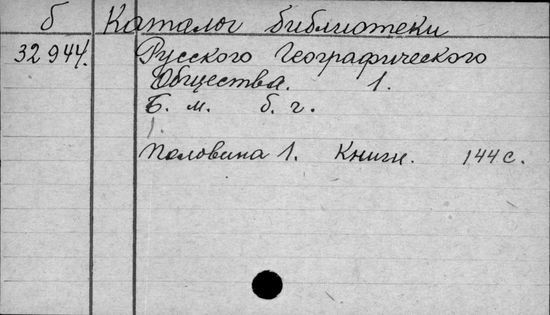 б Каталог библиотеки
32944. Русского Географического
Общества. 1.
Б. м. б. г.
1.
Половина 1. Книги. 144 с.